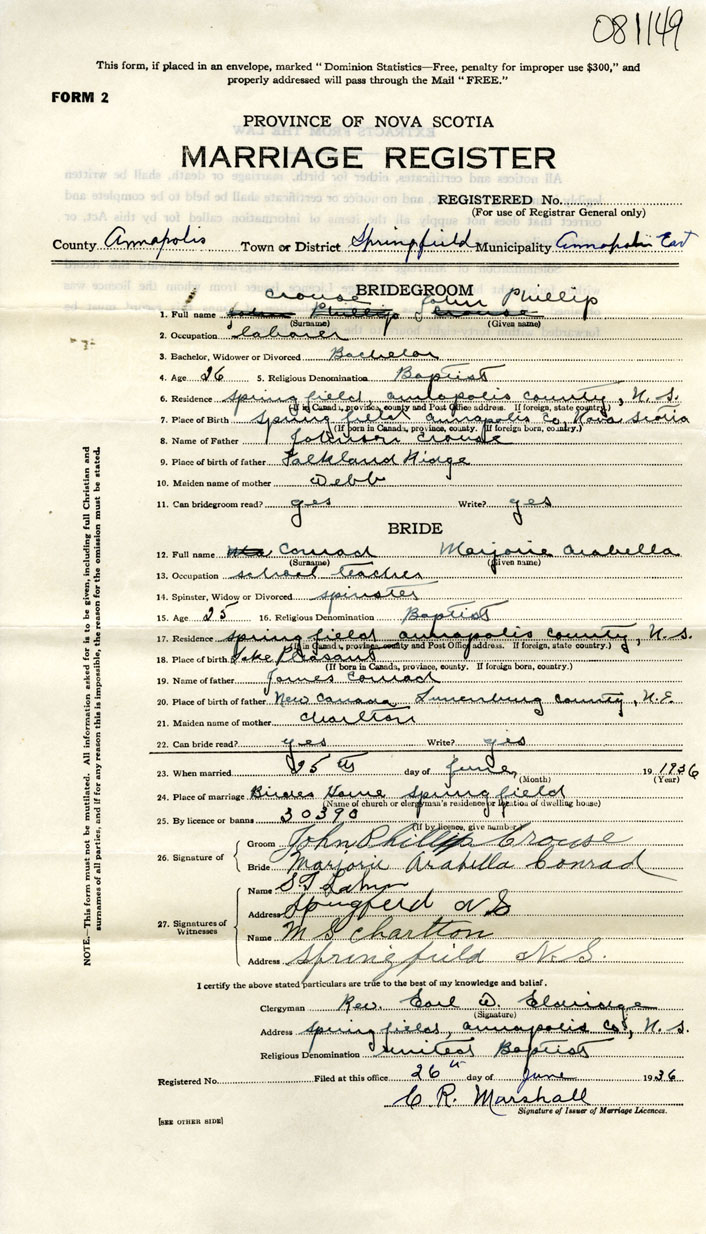 081149
This form, if placed in an envelope, marked "Dominion Statistics—Free, penalty for improper use $300," and
properly addressed will pass through the Mail "FREE."
FORM 2
PROVINCE OF NOVA SCOTIA
MARRIAGE REGISTER
REGISTERED No.
(For use of Registrar General only)
County Annapolis Town or District Springfield Municipality Annapolis East
BRIDEGROOM
Crouse John Phillip
1. Full name John Phillip Crouse
(Surname) (Given name)
2. Occupation laborer
3. Bachelor, Widower or Divorced Bachelor
4. Age 26 5. Religious Denomination Baptist
6. Residence Springfield, annapolis county, N.S.
(If in Canada, province, county and Post Office address. If foreign, state country.)
7. Place of Birth Springfield annapolis Co, Nova Scotia
(If born in Canada, province, county. If foreign born, country.)
8. Name of Father Johnson Crouse
9. Place of birth of father Falkland Ridge
10. Maiden name of mother Webb
11. Can bridegroom read? yes Write? yes
BRIDE
12. Full name Conrad Marjorie Arabella
(Surname) (Given name)
13. Occupation school teacher
14. Spinster, Widow or Divorced spinster
15. Age 25 16. Religious Denomination Baptist
17. Residence springfield annapolis county, N.S.
(If in Canada, province, county and Post Office address. If foreign, state country.)
18. Place of birth Lake Pleasant
(If born in Canada, province, county. If foreign born, country.)
19. Name of father James Conrad
20. Place of birth of father New Canada Lunenburg county, N.S.
21. Maiden name of mother Charlton
22. Can bride read? yes Write? yes
23. When married 25th day of June, 19 1936
(Month) (Year)
24. Place of marriage Brides Home Springfield
(Name of church or clergyman's residence or location of dwelling house)
25. By licence or banns 30390
(If by licence, give number)
26. Signature of
Groom John Phillip Crouse
Bride Marjorie Arabella Conrad
27. Signatures of Witnesses
Name
Address Springfield N S
Name M S Charlton
Address Springfield N.S.
I certify the above stated particulars are true to the best of my knowledge and belief.
Clergyman Rev. Earl W. Eldridge
(Signature)
Address Springfield, annapolis Co, N.S.
Religious Denomination United Baptist
Registered No. Filed at this office 26th day of June 1936
C. R. Marshall
Signature of Issuer of Marriage Licences.
[SEE OTHER SIDE]
NOTE.—This form must not be mutilated. All information asked for is to be given, including full Christian and
surnames of all parties, and if for any reason this is impossible, the reason for the omission must be stated.